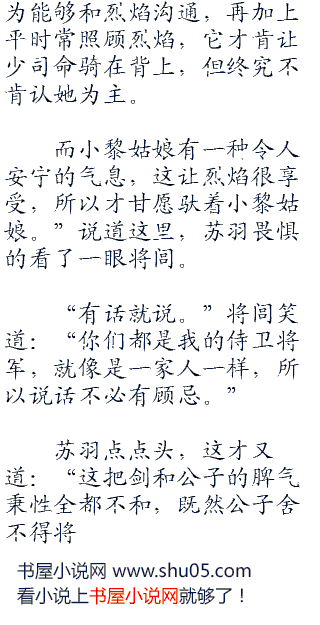 为能够和烈焰沟通，再加上
平时常照顾烈焰，它才肯让
少司命骑在背上，但终究不
肯认她为主。
而小黎姑娘有一种令人
安宁的气息，这让烈焰很享
受，所以才甘愿驮着小黎姑
娘。”说道这里，苏羽畏惧
的看了一眼将闾。
“有话就说。”将闾笑
道：“你们都是我的侍卫将
军，就像是一家人一样，所
以说话不必有顾忌。”
苏羽点点头，这才又
道：“这把剑和公子的脾气
秉性全都不和，既然公子舍
不得将
书屋小说网 www.shu05.com
看小说上书屋小说网就够了！